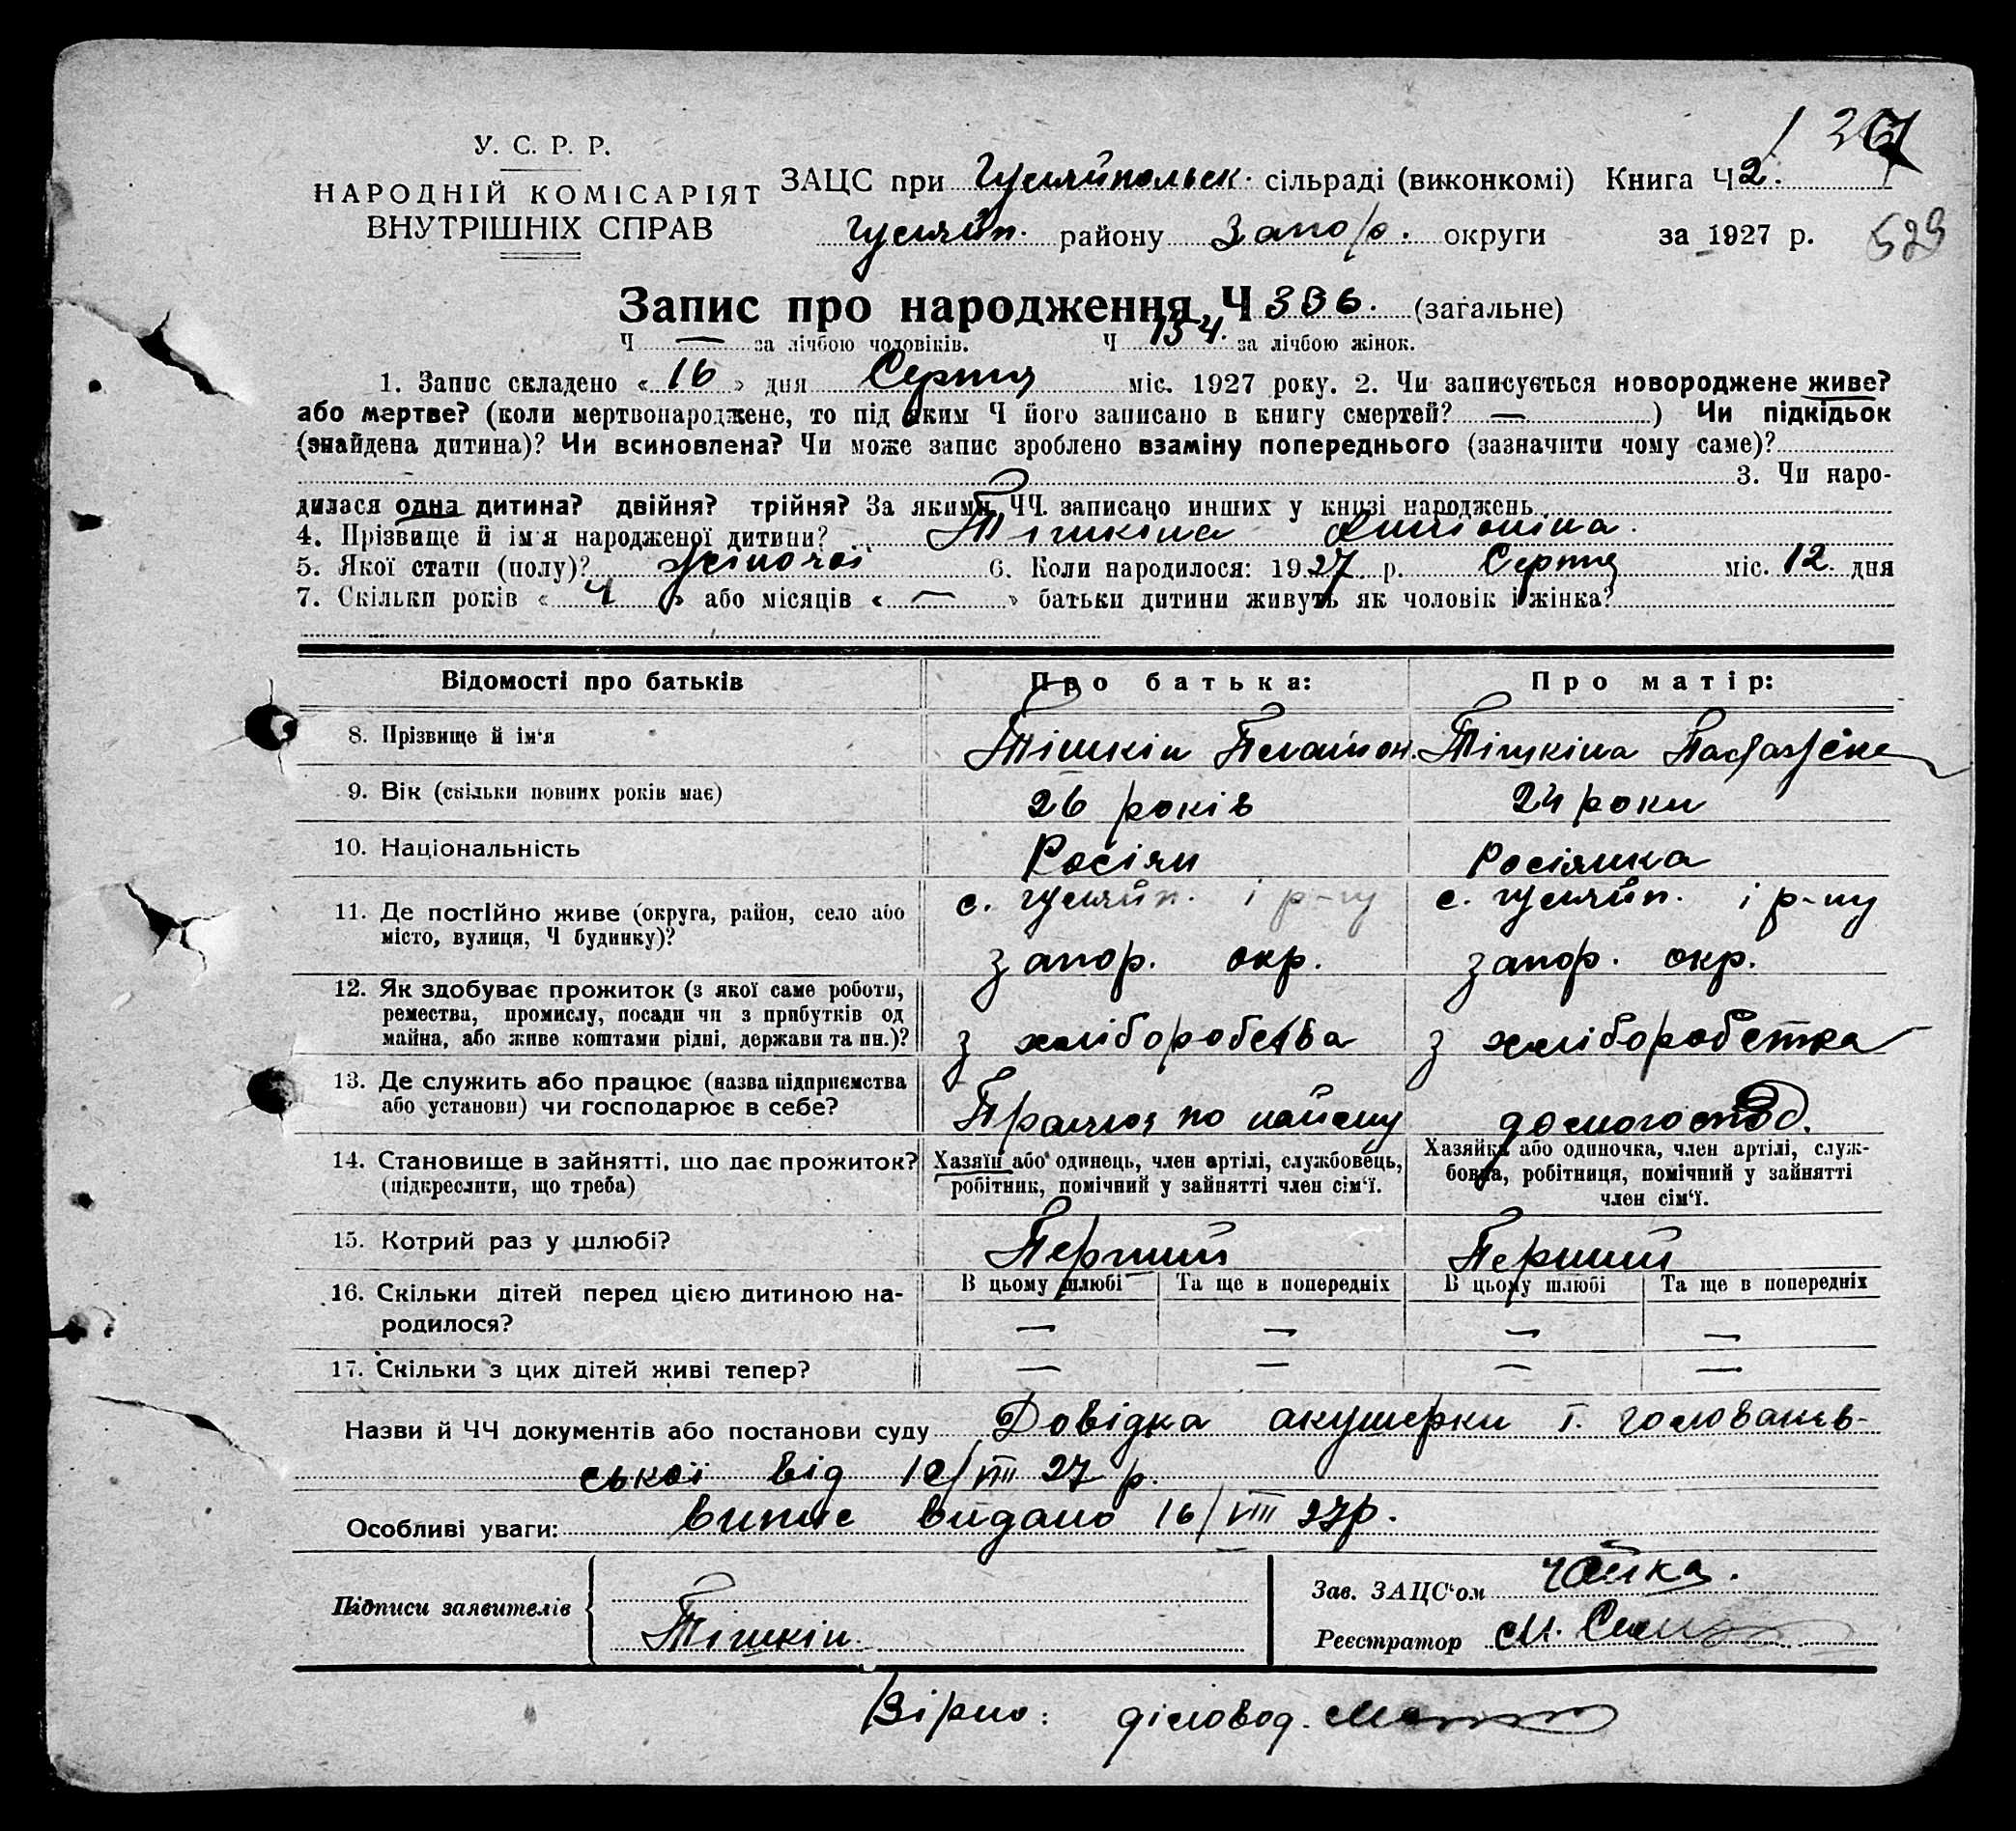 У. С. Р. Р.
НАРОДНІЙ КОМІСАРІЯТ
ВНУТРІШНІХ СПРАВ
ЗАЦС при Гуляйпольск. сільраді (виконкомі) Книга Ч 2.
Гуляйп. району Запор. округи за 1927 р.
529
Запис про народження Ч 336. (загальне)
Ч — за лічбою чоловіків. Ч 154. за лічбою жінок.
1. Запис складено «16» дня Серпня міс. 1927 року. 2. Чи записується новороджене живе?
або мертве? (коли мертвонароджене, то під яким Ч його записано в книгу смертей? — ) Чи підкідьок
(знайдена дитина)? Чи всиновлена? Чи може запис зроблено взаміну попереднього (зазначити чому саме)?
3. Чи наро-
дилася одна дитина? двійня? трійня? За якими ЧЧ. записано инших у книзі народжень
4. Прізвище й ім'я народженої дитини? Тішкіна Антоніна.
5. Якої стати (полу)? жіночої 6. Коли народилося: 1927 р. Серпня міс. 12 дня
7. Скільки років « 4 » або місяців « — » батьки дитини живуть як чоловік і жінка?
Відомості про батьків Про батька: Про матір:
8. Прізвище й ім'я Тішкін Платон. Тішкіна
9. Вік (скільки повних років має) 26 років 24 роки
10. Національність Росіян Росіянка
11. Де постійно живе (округа, район, село або
місто, вулиця, Ч будинку)?
с. Гуляйп. і р-ну с. Гуляйп. і р-ну
Запор. окр. Запор. окр.
12. Як здобуває прожиток (з якої саме роботи,
ремества, промислу, посади чи з прибутків од
майна, або живе коштами рідні, держави та ин.)?
з хліборобства з хліборобства
13. Де служить або працює (назва підприємства
або установи) чи господарює в себе?
Працює по найому домогоспод.
14. Становище в зайнятті, що дає прожиток?
(підкреслити, що треба)
Хазяїн або одинець, член артілі, службовець,
робітник, помічний у зайнятті член сім'ї.
Хазяйка або одиночка, член артілі, служ-
бовка, робітниця, помічний у зайнятті
член сім'ї.
15. Котрий раз у шлюбі? Перший Перший
16. Скільки дітей перед цією дитиною на-
родилося?
В цьому шлюбі Та ще в попередніх В цьому шлюбі Та ще в попередніх
— — — —
17. Скільки з цих дітей живі тепер? — — — —
Назви й ЧЧ документів або постанови суду Довідка акушерки І. Головань-
ської від VIII 27 р.
Особливі уваги: випис видано 16/VIII 27р.
Підписи заявителів
Тішкін.
Зав. ЗАЦС'ом Чайка.
Реєстратор М.
Вірно: діловод.